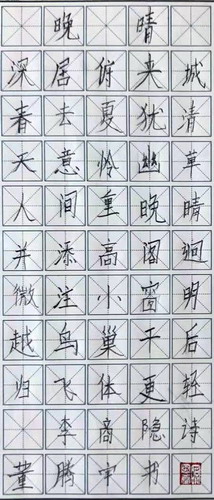 晚晴
深居俯夹城
春去夏犹清
天意怜幽草
人间重晚晴
并添高阁迥
微注小窗明
越鸟巢干后
归飞体更轻
李商隐诗
董腾宇书